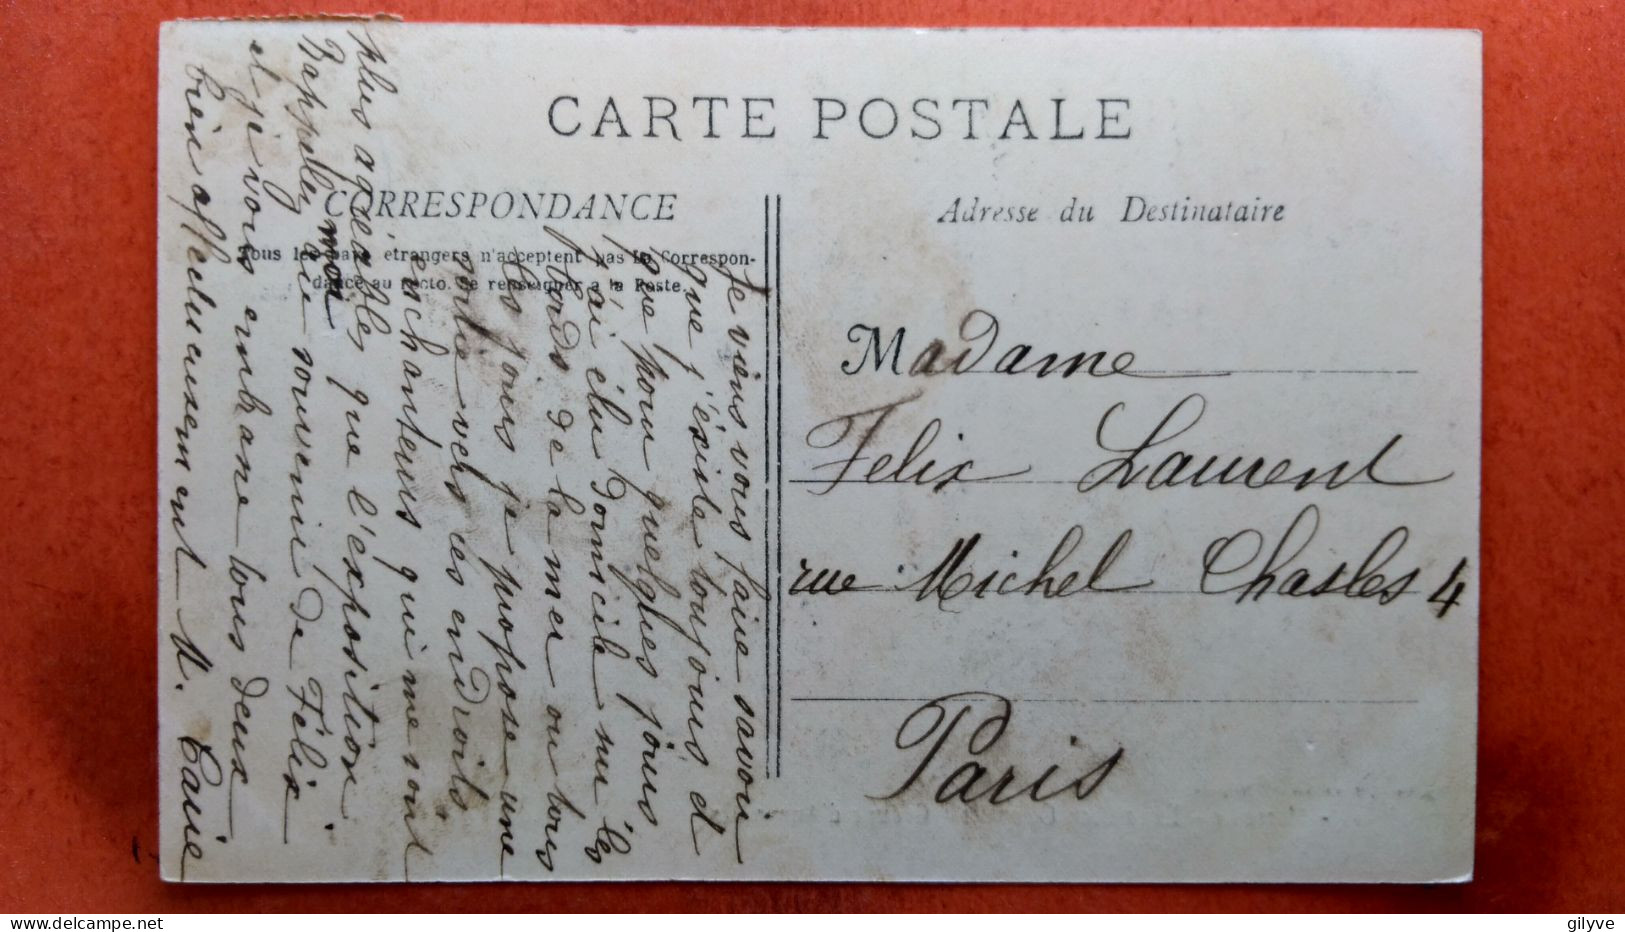 CARTE POSTALE
CORRESPONDANCE
Tous les pays etrangers n'acceptent pas la Correspon-
dance au recto. Se renseigner a la Poste.
Adresse du Destinataire
Madame
Felix Laurent
rue Michel Chasles 4
Paris
Je viens vous faire savoir
que j'éxiste toujours et
que pour quelques jours
j'ai élu domicile sur les
bords de la mer ou tous
les jours je propose une
sortie vers les endroits
enchanteurs qui me sont
plus agréables que l'éxposition
Rappelez moi au souvenir de Félix
et je vous embrasse tous deux
bien affectueusement M.
gilyve